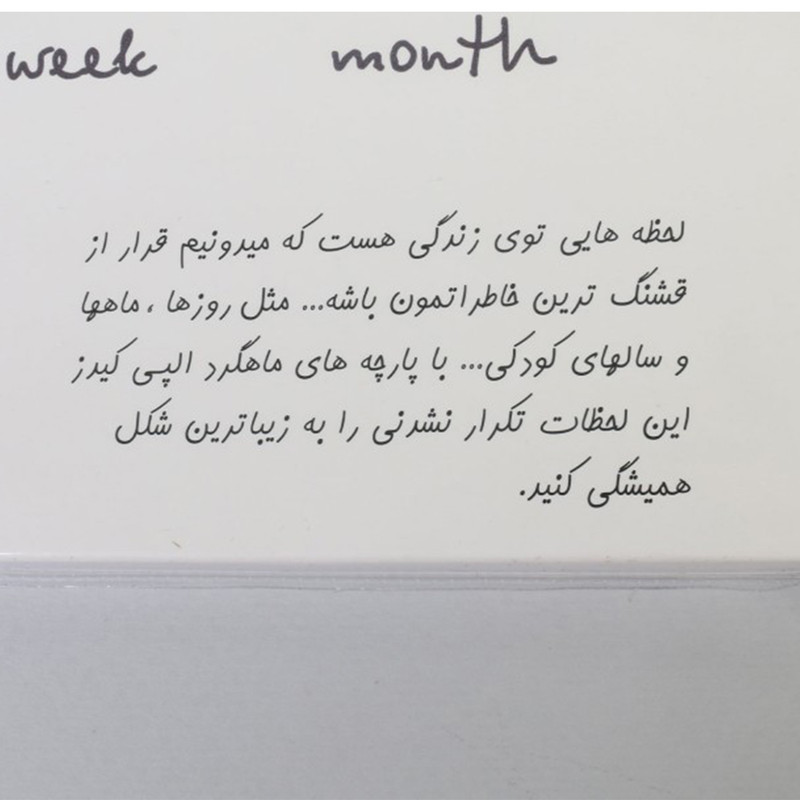 week month
لحظه هایی توی زندگی هست که میدونیم قرار از
قشنگ ترین خاطراتمون باشه... مثل روزها ، ماهها
و سالهای کودکی... با پارچه های ماهگرد الپی کیدز
این لحظات تکرار نشدنی را به زیباترین شکل
همیشگی کنید.